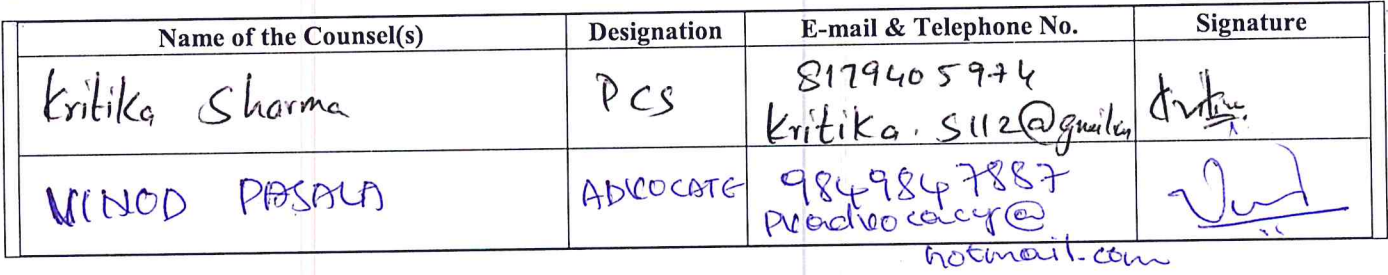 Name of the Counsel(s) Designation E-mail & Telephone No. Signature
Kritika Sharma PCS 8179405974
Kritika.S112@gmail.com
VINOD PASALA ADVOCATE 9849847887
pvadvocacy@
hotmail.com